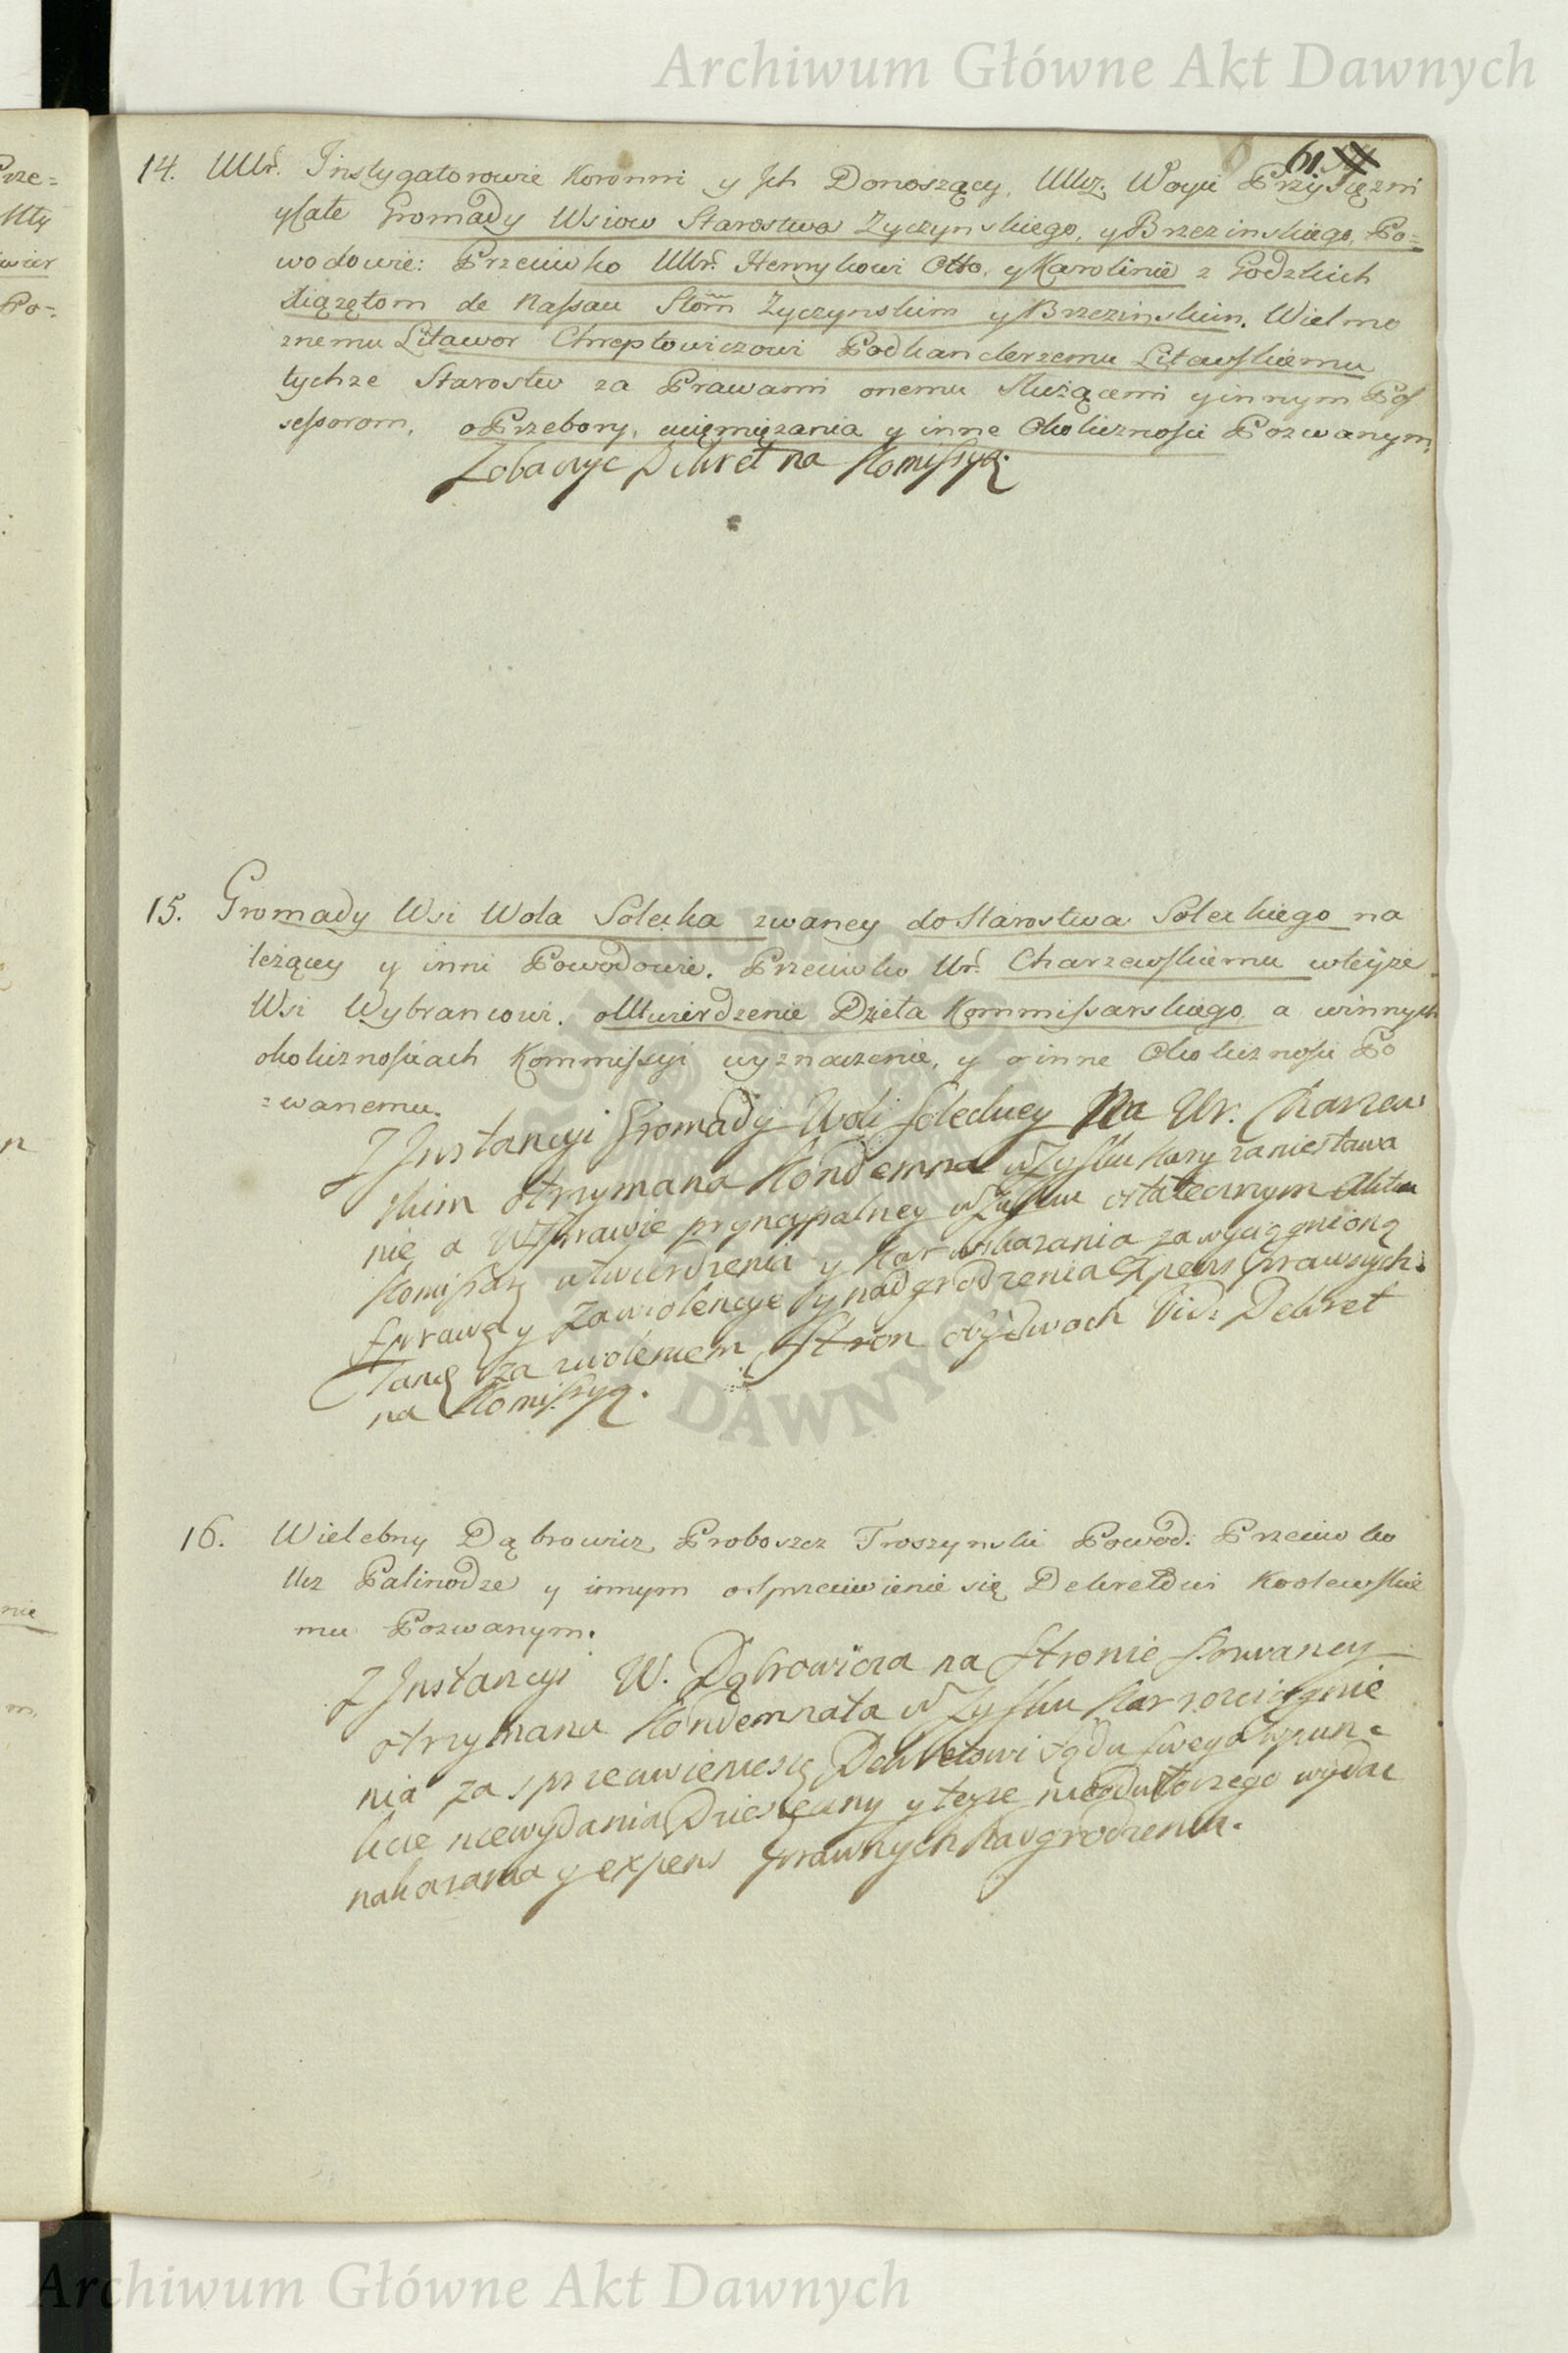 Archiwum Główne Akt Dawnych
61.
14. UUr. Instygatorowie Koronni y Ich Donoszący, UUcz. Woyci Przysiężni
y Całe Gromady Wsiow Starostwa Zyczynskiego, y Brzezinskiego, Po=
wodowie: Przeciwko UUr. Henrykowi Otto, y Karolinie z Godzkich
Xiążętom de Nassau Stom Zyczynskim y Brzezinskim, Wielmo
znemu Litawor Chreptowiczowi Podkanclerzemu Litewskiemu
tychze Starostw za Prawami onemu służącemi y innym Pos
sessorom, o Przebory, uciemiężania y inne Okoliczności Pozwanym,
Zobaczyc Dekret na Komissyą.
15. Gromady Wsi Wola Solecka zwaney do Starostwa Soleckiego na
leżący y inni Powodowie. Przeciwko Ur. Charzewskiemu w teyze
Wsi Wybrancowi. o Utwierdzenie Dzieła Kommissarskiego, a w innych
okolicznościach Kommissyi wyznaczenie, y o inne Okoliczności Po
zwanemu.
Z Instancyi Gromady Woli Soleckiey Na Ur. Charzew
skim otrzymana Kondemna w Zysku kary za niestawa
nie a W Sprawie pryncypalney w Zysku ostatecznym Aktu
Komissarz utwierdzenia y Kar wskazania za wyciągnioną
Sprawę y Zawiolencye y nadgrodzenia Expens Prawnych.
Taną za zwoleniem Stron obydwoch Vid: Dekret
na Komissyą.
16. Wielebny Dąbrowicz Proboszcz Troszynski Powod: Przeciwko
Ucz Palinodze y innym o sprzeciwienie się Dekretowi Krolewskie
mu Pozwanym.
Z Instancyi W. Dąbrowicza na Stronie Pozwaney
otrzymana Kondemnata w Zysku Kar rozciągnie
nia za sprzeciwienie się Dekretowi Sądu swego w pun=
kcie niewydania Dziesięciny y teyze wydac
nakazania y expens prawnych nadgrodzenia.
Archiwum Główne Akt Dawnych